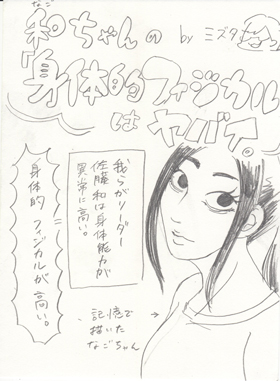 なご
和ちゃんの by ミズタ
「身体的フィジカル
はヤバイ。
我らがリーダー
佐藤和は身体能力が
異常に高い。
身体的フィジカルが高い。
記憶で
描いた
なごちゃん